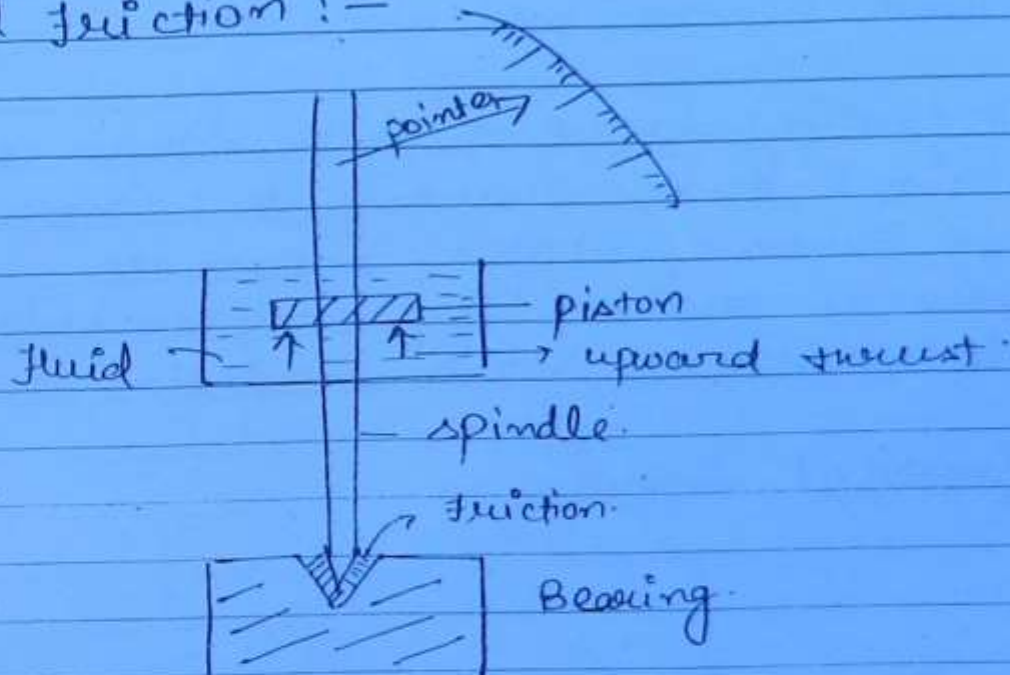 friction :-
pointer
piston
fluid
upward thrust
spindle.
friction.
Bearing.